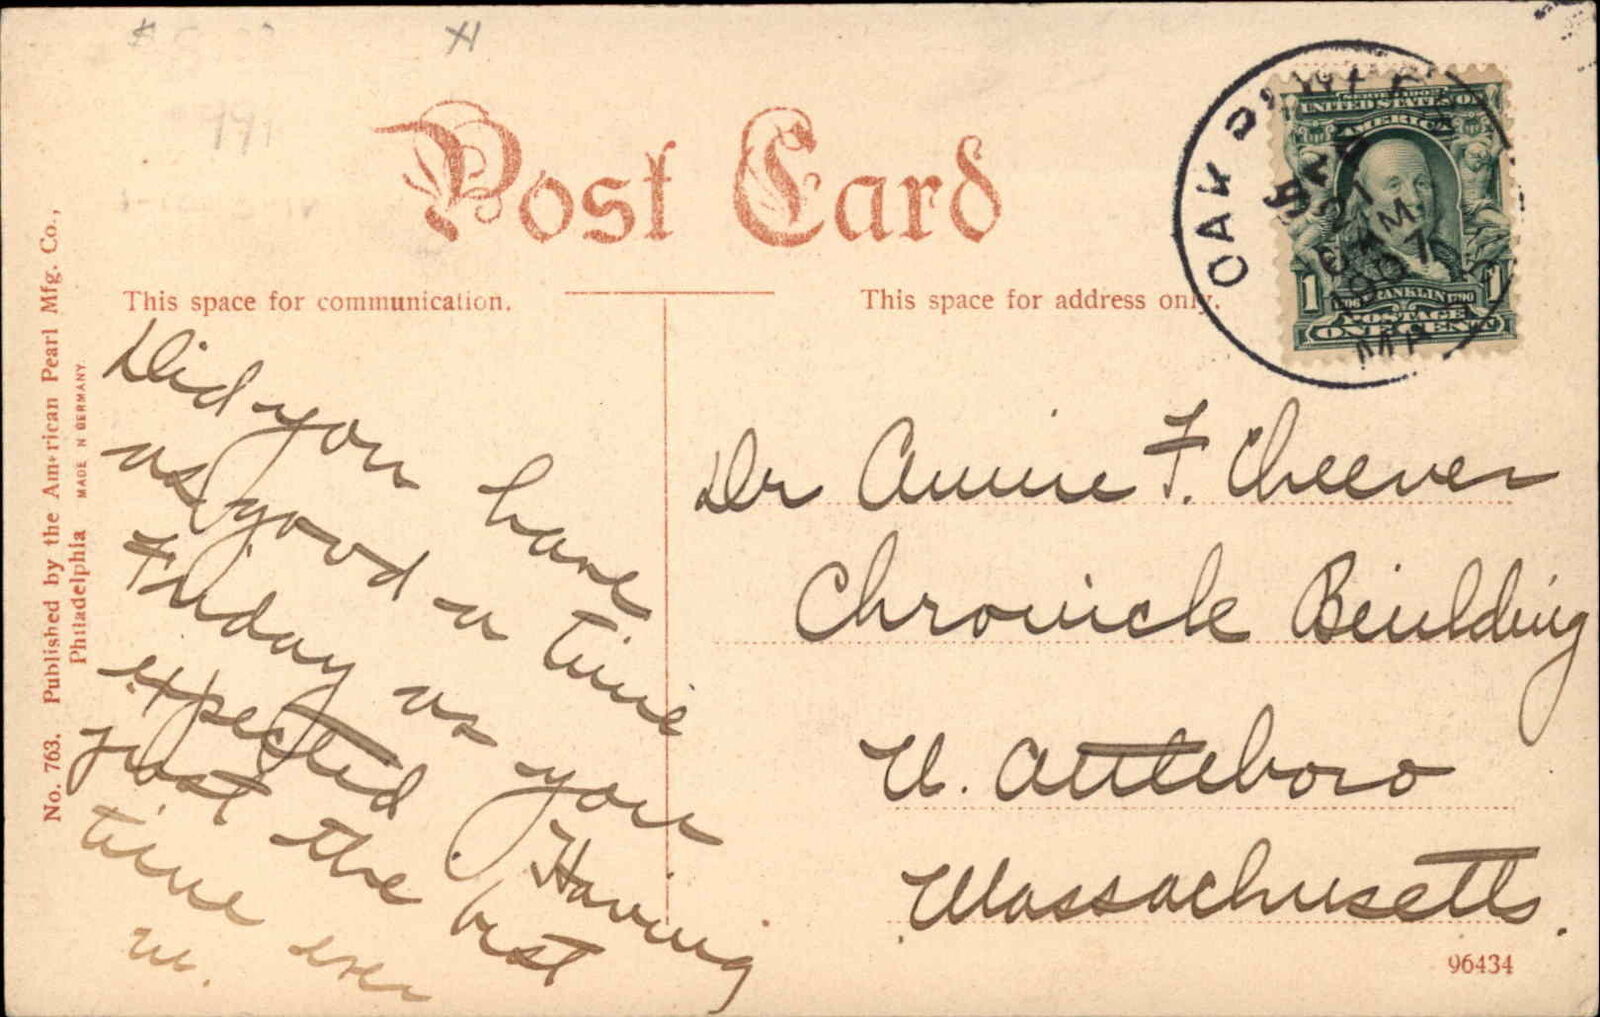 Post Card
This space for communication.
This space for address only.
No. 763. Published by the American Pearl Mfg. Co.,
Philadelphia MADE IN GERMANY
Did you have
as good a time
Friday as you
expected. Having
just the best
time ever
M.
Dr Annie F. Cheever
Chronicle Beiulding
N. Attleboro
Massachusetts.
96434
OAK BLUFFS
21
6 AM
1907
MASS
SERIES 1902
UNITED STATES OF
AMERICA
1 1706 FRANKLIN 1790 1
POSTAGE
ONE CENT